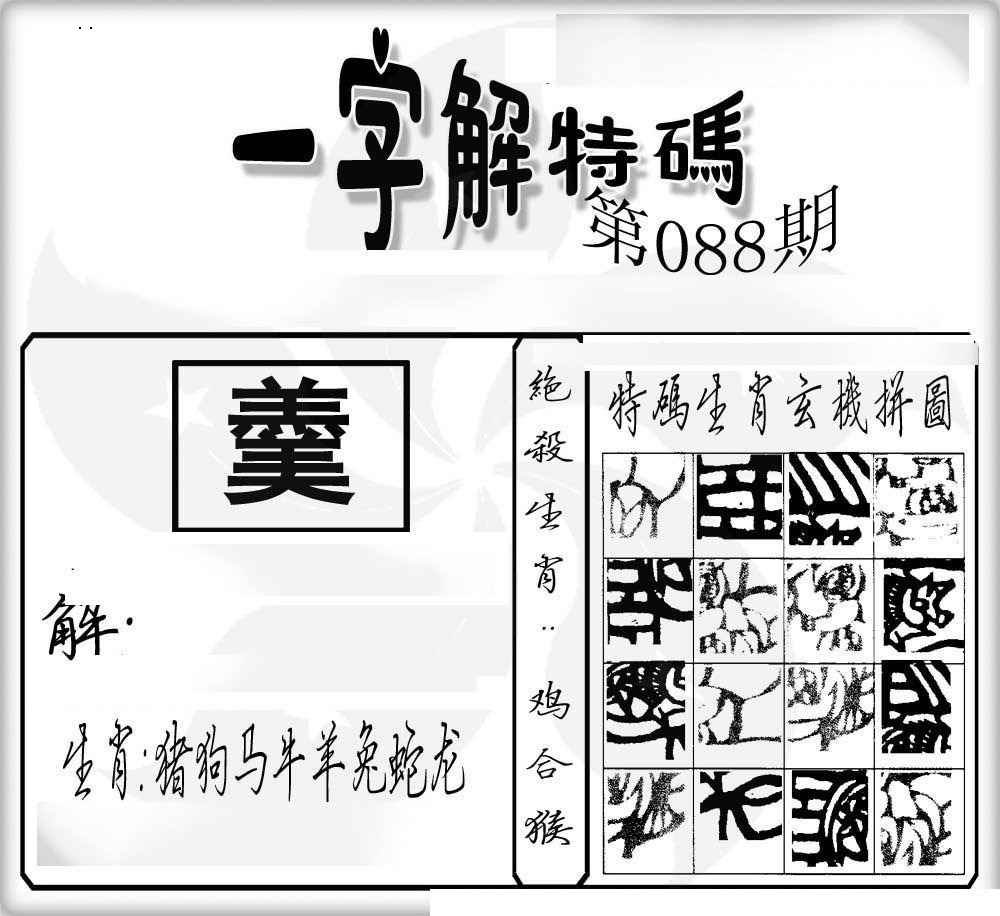 一字解特碼
第088期
羹
解:
生肖:猪狗马牛羊兔蛇龙
絶殺生肖:鸡合猴
特碼生肖玄機拼圖